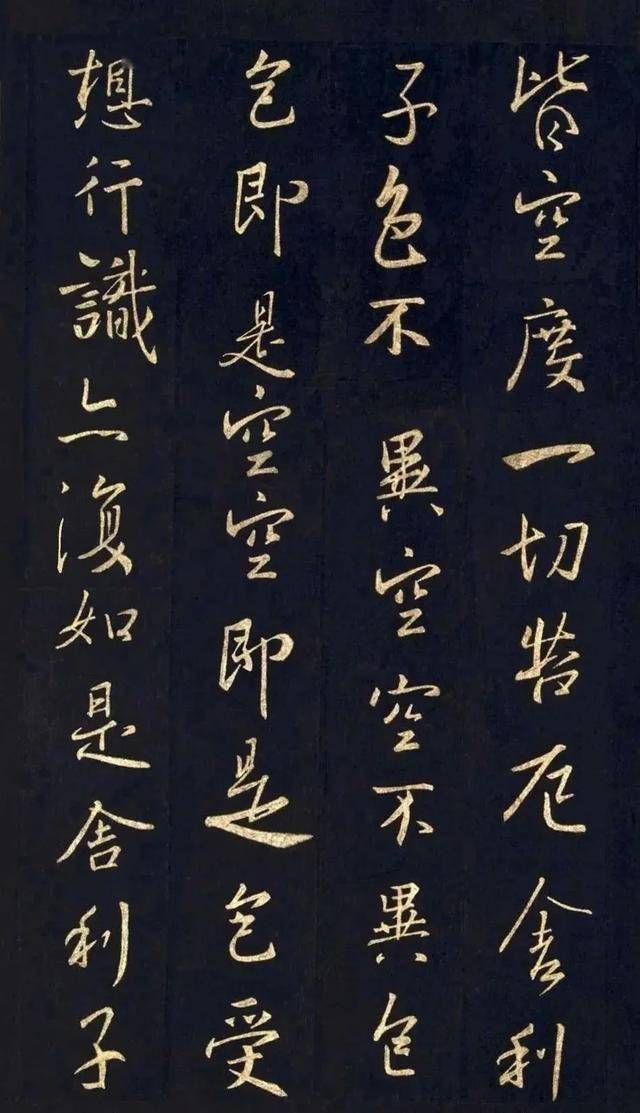 皆空度一切苦厄舍利
子色不異空空不異色
色即是空空即是色受
想行識亦復如是舍利子